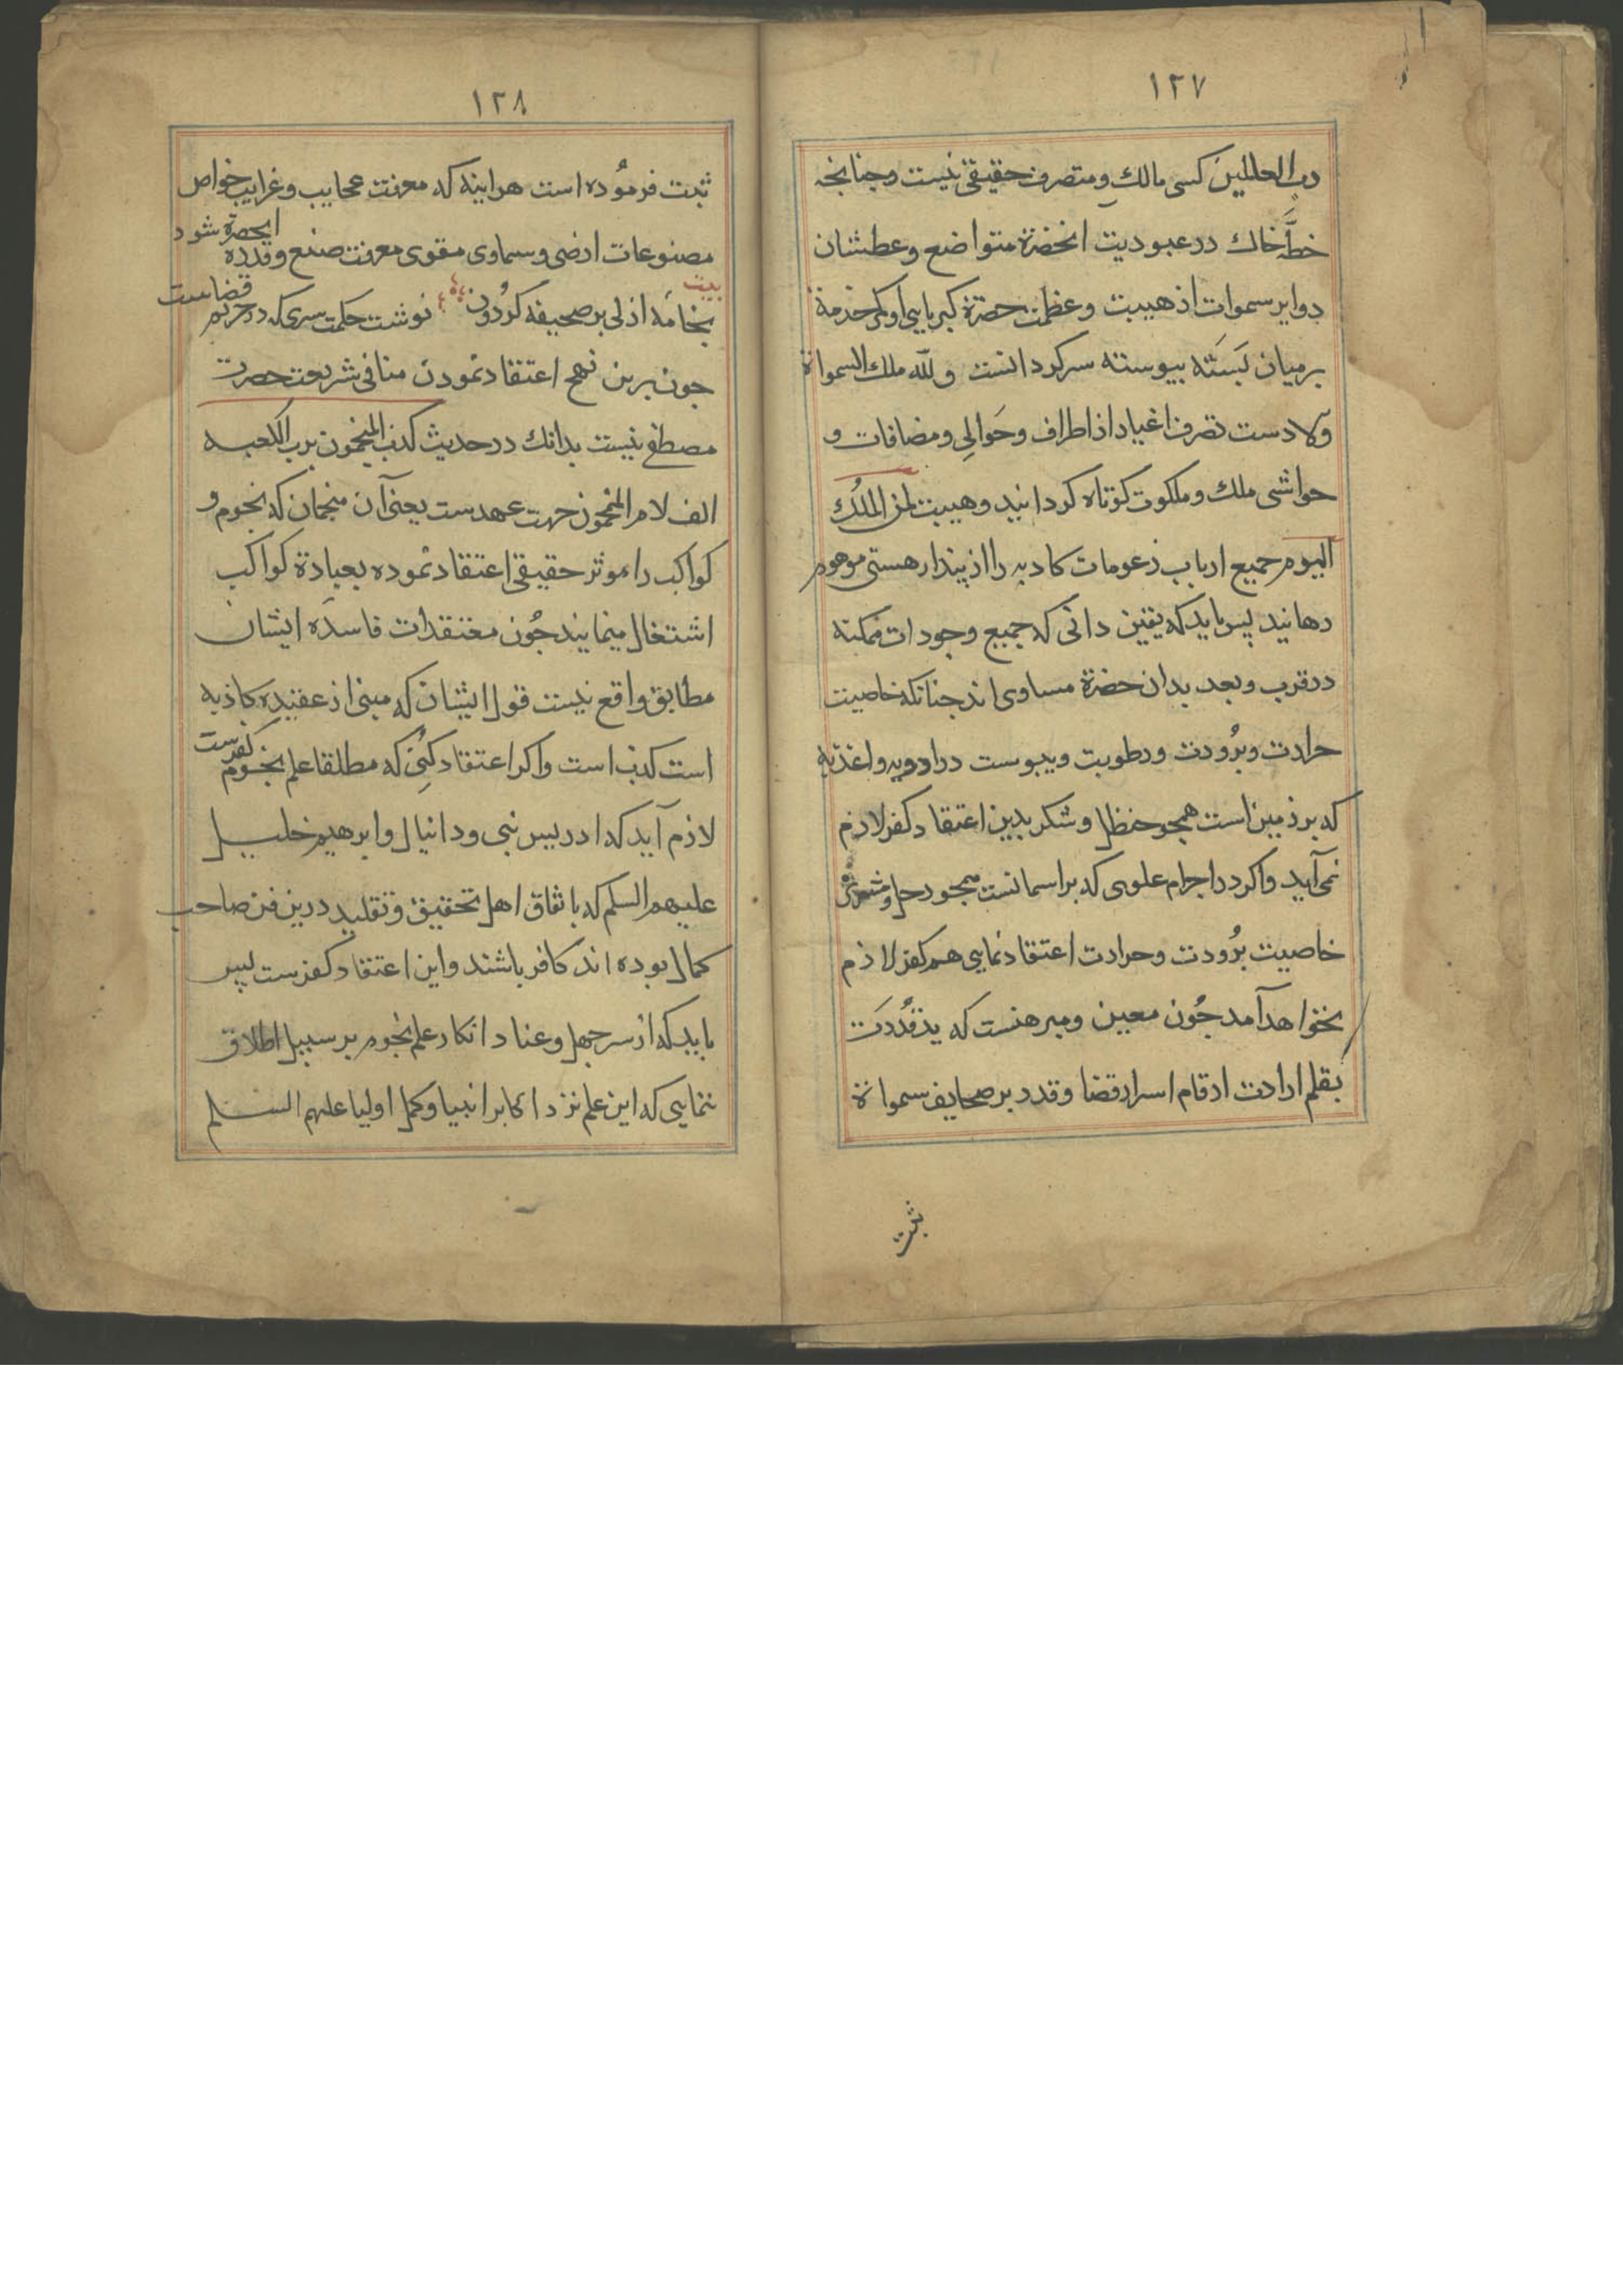 ١٢٧
رب العالمین کسی مالك و متصرف حقیقی نیست و جنانجه
خطّهٔ خاك در عبودیت انحضرة متواضع و عطشان
دوایر سموات از هیبت و عظمت حضرة کبریایی او کمر خدمة
بر میان بَستَه بیوسته سرکردانست و لله ملك السمواة
و لا دست تصرف اغیار از اطراف و حَوالِی و مضافات و
حواشی ملك و ملکوت کوتاه کردانید و هیبت لمن المُلك
الیوم جمیع ارباب زعومات کادبه را از پندار هستی موهوم
رهانید پس باید که یقین دانی که جمیع وجودات ممکنه
در قرب و بعد بدان حضرة مساوی اند جنانکه خاصیت
حرارت و برُودت و رطوبت و یبوست در ادویه و اغذیه
که بر زمین است همجو حنظل و شکر بدین اعتقاد کفر لازم
نمی آید و اکر در اجرام علوی که بر اسمانست همجو زحل و مشتری
خاصیت برُودت و حرارت اعتقاد نمایی هم کفر لازم
نخواهد آمد جُون معین و مبرهنست که ید قُدرَت
بقلم ارادت ارقام اسرار قضا و قدر بر صحایف سمواة
ثبت
١٢٨
ثبت فرمُوده است هراینه که معرفت عجایب و غرایب خواص
مصنوعات ارضی و سماوی مقوی معرفت صنع و قدرة انحضرة شود
بیت
بخامَه ازلی بر صحیفه کردُون نوشت حکمت سری که در حریم قضاست
جون برین نهج اعتقاد نمودن منافی شریعت حضرت
مصطفی نیست بدانك در حدیث کذب المنجمون برب الکعبه
الف لام المنجمون جهت عهدست یعنی آن منجمان که نجوم و
کواکب را موثر حقیقی اعتقاد نموده بعبادة کواکب
اشتغال مینمایند جُون معتقدات فاسدَه ایشان
مطابق واقع نیست قول ایشان که مبنی از عقیده کاذبه
است کذب است و اکر اعتقاد کنی که مطلقا علم نجوم کفرست
لازم آید که ادریس نبی و دانیال و ابرهیم خلیل
علیهم السلم که باتفاق اهل تحقیق و تقلید درین فن صاحب
کمال بوده اند کافر باشند و این اعتقاد کفرست پس
باید که از سر جهل و عناد انکار علم نجوم بر سبیل اطلاق
ننمایی که این علم نزد اکابر انبیا و کمل اولیا علیهم السلم